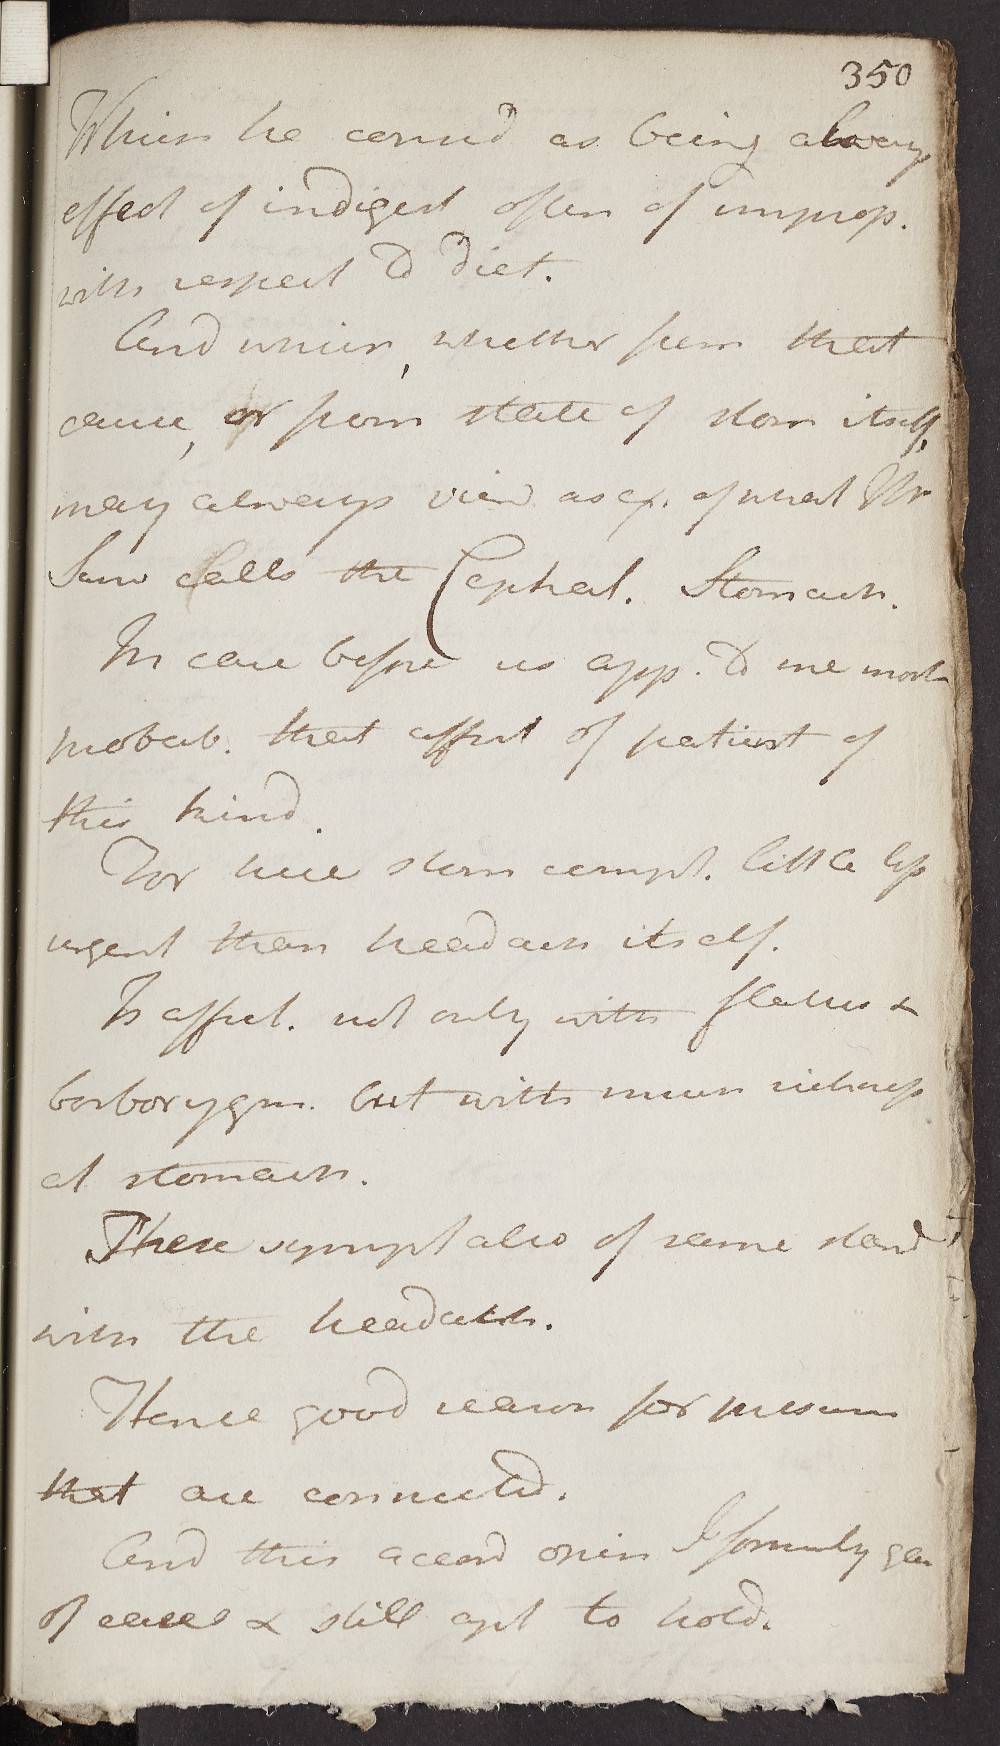 350
Which he consid as being always
effect of indigest often of improp.
with respect to diet.
And which, whether from that
cause, or from state of stom itself,
may always view as ex. of what Mr
calls the Cephal. Stomach.
In case before us app. to me most
probab. that affect of patient of
this kind.
For here stom compl. little less
urgent than headach itself.
Is affect. not only with flatus &
borborygm. but with much sickness
at stomach.
These sympt also of same stand
with the headach.
Hence good reason for presum
that are connected.
And this accord opin I formerly gav
of case & still apt to hold.